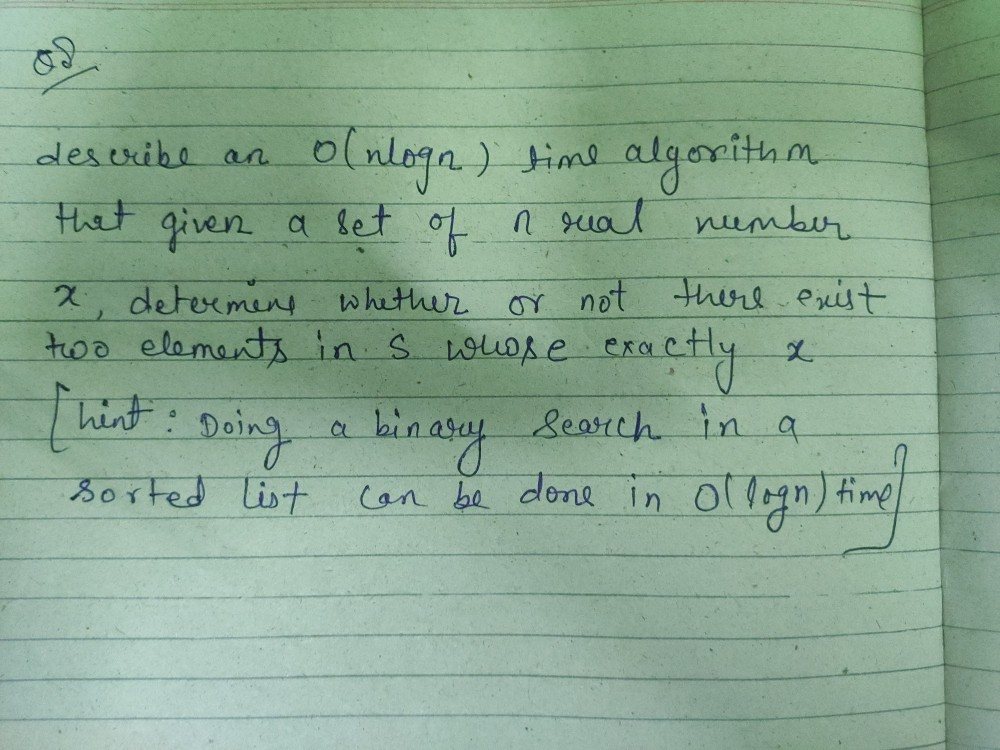 Q8
describe an O(nlogn) time algorithm
that given a set of n real number
x, determine whether or not there exist
two elements in S whose exactly x
[hint: Doing a binary search in a
sorted list can be done in O(logn) time]